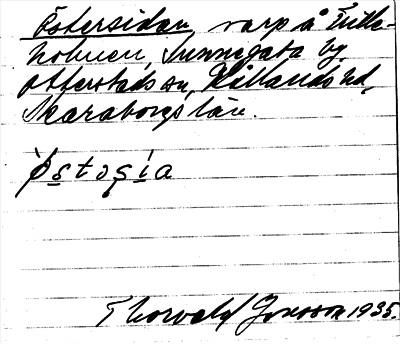 Östersidan, varp å Lille-
holmen, Sunnegata by
Otterstads sn, Kållands hd,
Skaraborgs län.
Thorvald Jonsson 1935.